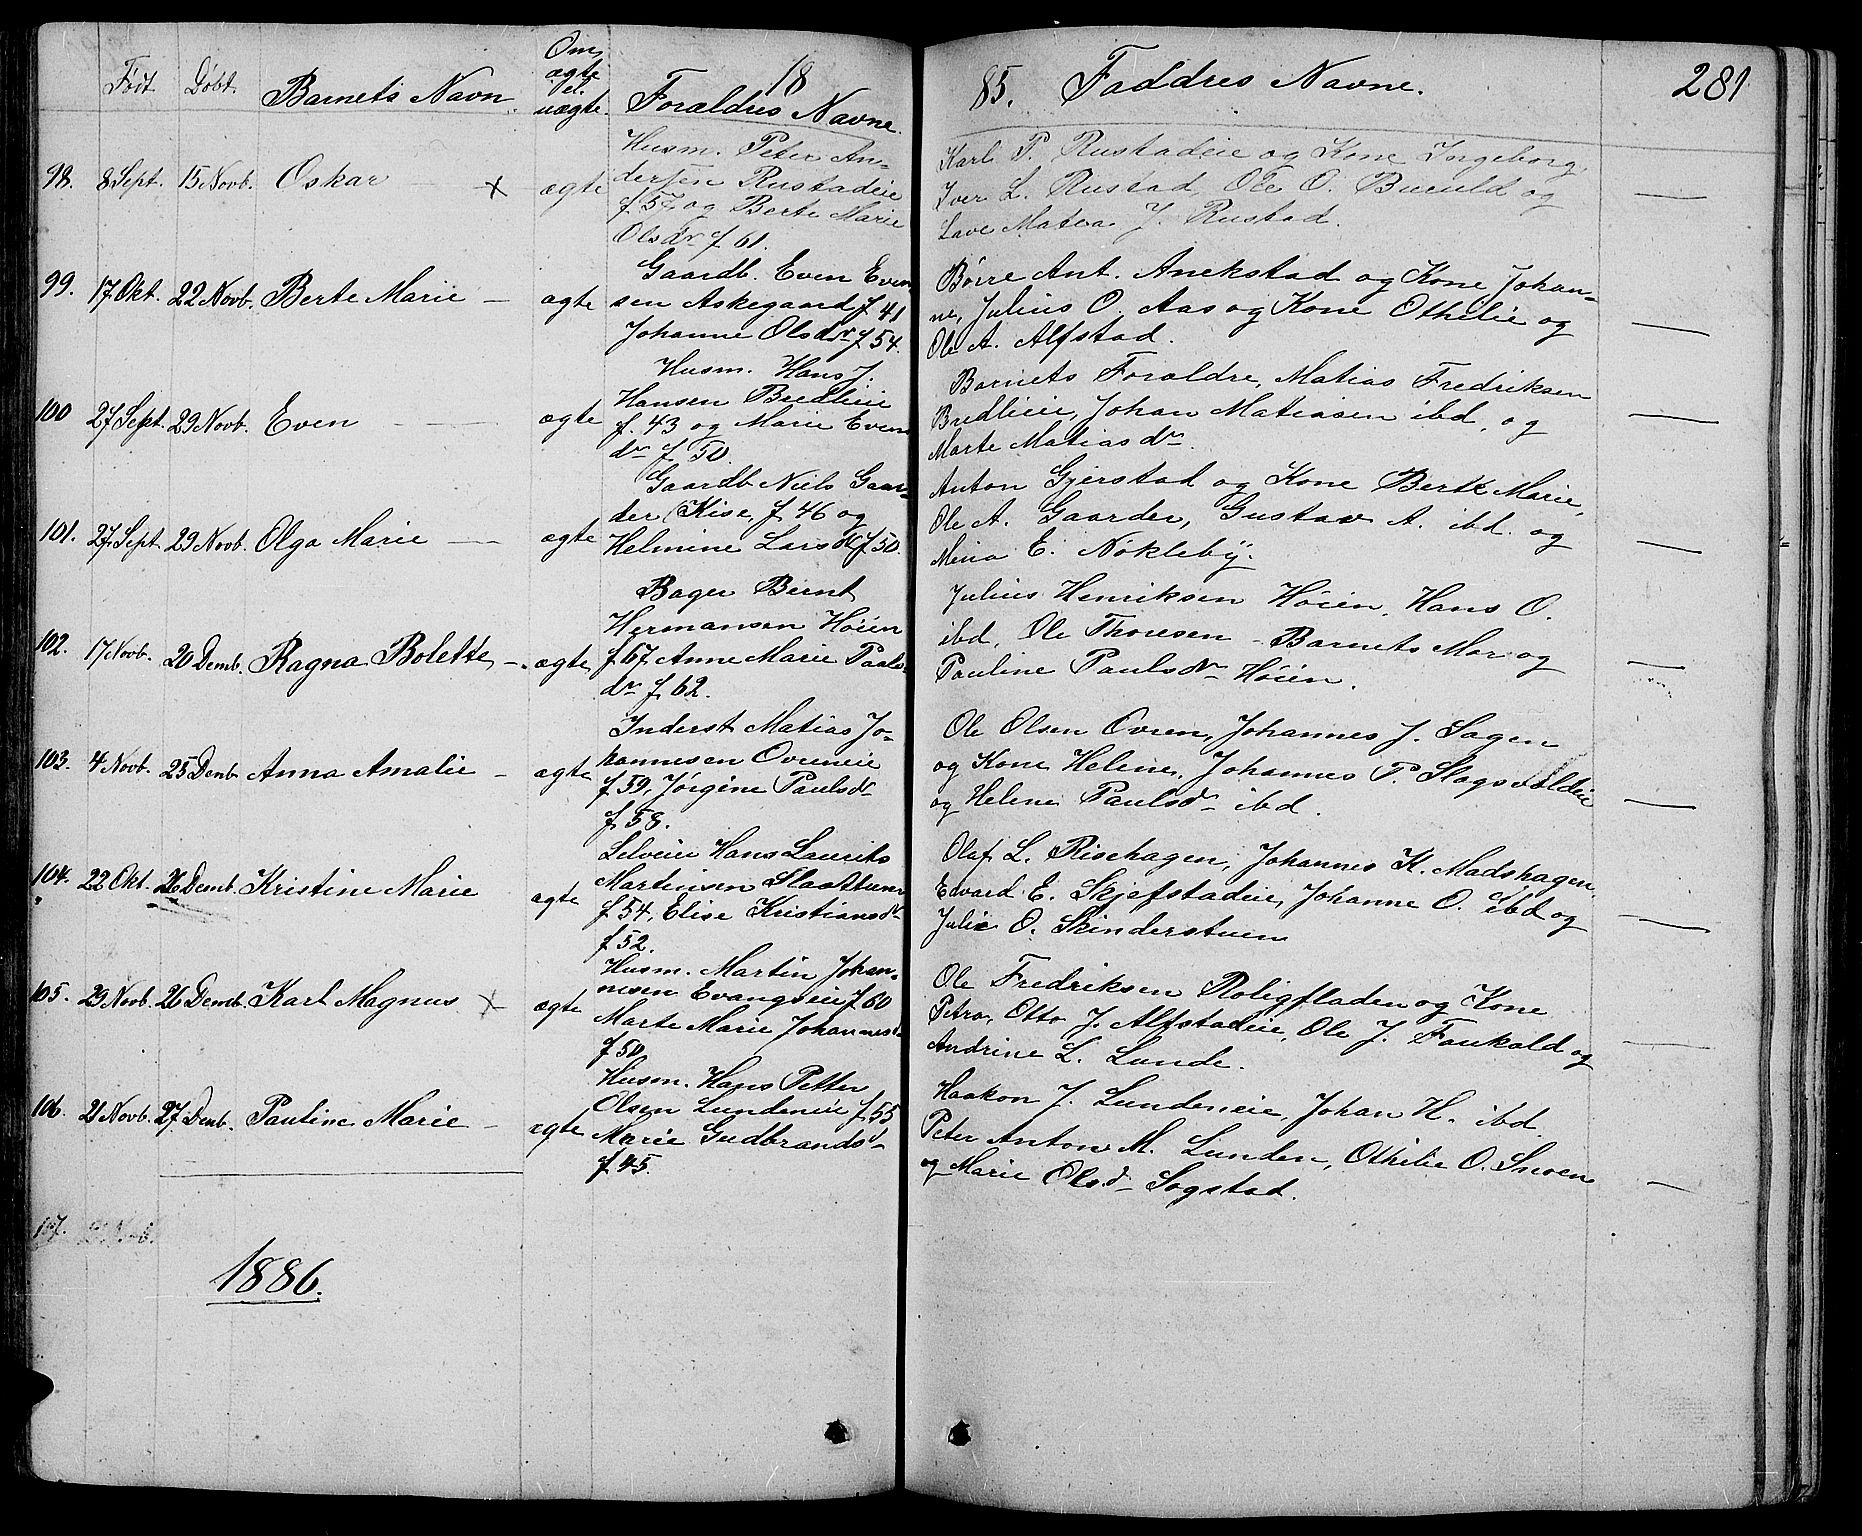 Født Døbt. Barnets Navn. Om ægte el. uægte. Foraldres Navne. 18
85. Faddres Navne. 281
98. 8 Sept. 15 Novb. Oskar — x ægte
Husm. Peter An-
dersen Rustadeie
f. 57, og Berte Marie
Olsdr f 61.
Karl P. Rustadeie og Kone Ingeborg,
Iver L. Rustad, Ole O. Bueuld og
Lave Matea J. Rustad. —
99. 17 Okt. 22 Novb. Berte Marie — ægte
Gaardb. Even Even
sen Askegaard f 41
Johanne Olsdr f 54.
Børre Ant. Anekstad og Kone Johan-
ne, Julius O. Aas og Kone Othelie og
Ole A. Alfstad. —
100 27 Sept. 29 Novb. Even — ægte
Husm. Hans J.
Hansen Bredlieie
f. 43 og Marie Evens
dr f 50.
Barnets Foraldre, Matias Fredriksen
Bredlieie, Johan Matiasen ibd, og
Marte Matiasdr —
101. 27 Sept 29 Novb. Olga Marie — ægte
Gaardb Niels Gaar-
der (Kise, f 46 og
Helmine Larsdr f 50.
Anton Gjerstad og Kone Berte Marie,
Ole A. Gaarder, Gustav A. ibd. og
Mina E. Nökleby. —
102. 17 Novb. 20 Demb. Ragna Bolette — ægte
Bager Bernt
Hermansen Höien
f. 67, Anne Marie Pauls
dr f 62.
Julius Henriksen Höien, Hans O.
ibd, Ole Thoresen - Barnets Mor og
Pauline Paulsdr Höien. —
103. 4 Novb. 25 Demb Anna Amalie — ægte
Inderst Matias Jo-
hannesen Ovreneie
f 59, Jörgine Paulsdr
f 58.
Ole Olsen Ovren, Johannes J. Sagen
og Kone Helene, Johannes P. Slagsvoldeie
og Helene Paulsdr ibd. —
104. 22 Okt. 26 Demb. Kristine Marie ægte
Selveier Hans Laurits
Martinsen Slaattum
f 54, Elise Kristiansdr
f 52.
Olaf L. Risehagen, Johannes K. Madshagen,
Edvard E. Skjefstadeie, Johanne O. ibd og
Julie O. Skinderstuen —
105. 29 Novb. 26 Demb. Karl Magnus x ægte
Husm. Martin Johan-
nesen Evangseie f 60
Marte Marie Johannesd
f 50
Ole Fredriksen Roligfladen og Kone
Petra, Otto J. Alfstadeie, Ole J. Faukald og
Andrine L. Lunde. —
106. 21 Novb. 27 Demb. Pauline Marie — ægte
Husm. Hans Petter
Olsen Lundeneie f 55
Marie Gudbrands-
f 45.
Haakon J. Lundeneie, Johan H. ibd.
Peter Anton M. Lunden, Othilie O. Snoen
og Marie Olsd Sogstad. —
107. 21 Novb.
1886.